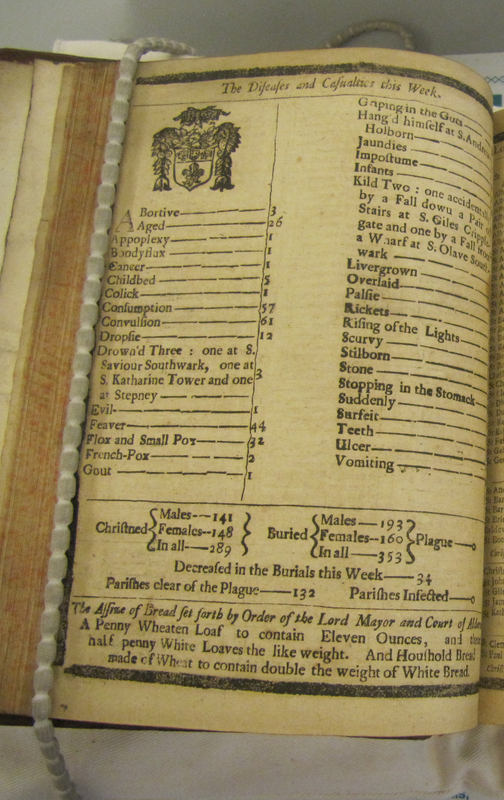 The Diſeaſes and Caſualties this Week.
Abortive 3
Aged 26
Appoplexy 1
Bloodyflux 1
Cancer 1
Childbed 5
Colick 1
Conſumption 57
Convulſion 61
Dropſie 12
Drown'd Three : one at S.
Saviour Southwark, one at
S. Katharine Tower and one 3
at Stepney
Evil 1
Feaver 44
Flox and Small Pox 32
French-Pox 2
Gout 1
Griping in the Guts
Hang'd himſelf at S. Andrew
Holborn
Jaundies
Impoſtume
Infants
Kild Two : one accidentally
by a Fall down a Pair
Stairs at S. Giles Cripple-
gate and one by a Fall from
a Wharf at S. Olave South-
wark
Livergrown
Overlaid
Palſie
Rickets
Riſing of the Lights
Scurvy
Stilborn
Stone
Stopping in the Stomack
Suddenly
Surfeit
Teeth
Ulcer
Vomiting
Chriſtned { Males 141
Females 148
In all 289
Buried { Males 193
Females 160
In all 353 } Plague 0
Decreaſed in the Burials this Week 34
Pariſhes clear of the Plague 132 Pariſhes Infected 0
The Aſſize of Bread ſet forth by Order of the Lord Mayor and Court of
A Penny Wheaten Loaf to contain Eleven Ounces, and
half penny White Loaves the like weight. And Houſhold Bread
made of Wheat to contain double the weight of White Bread.